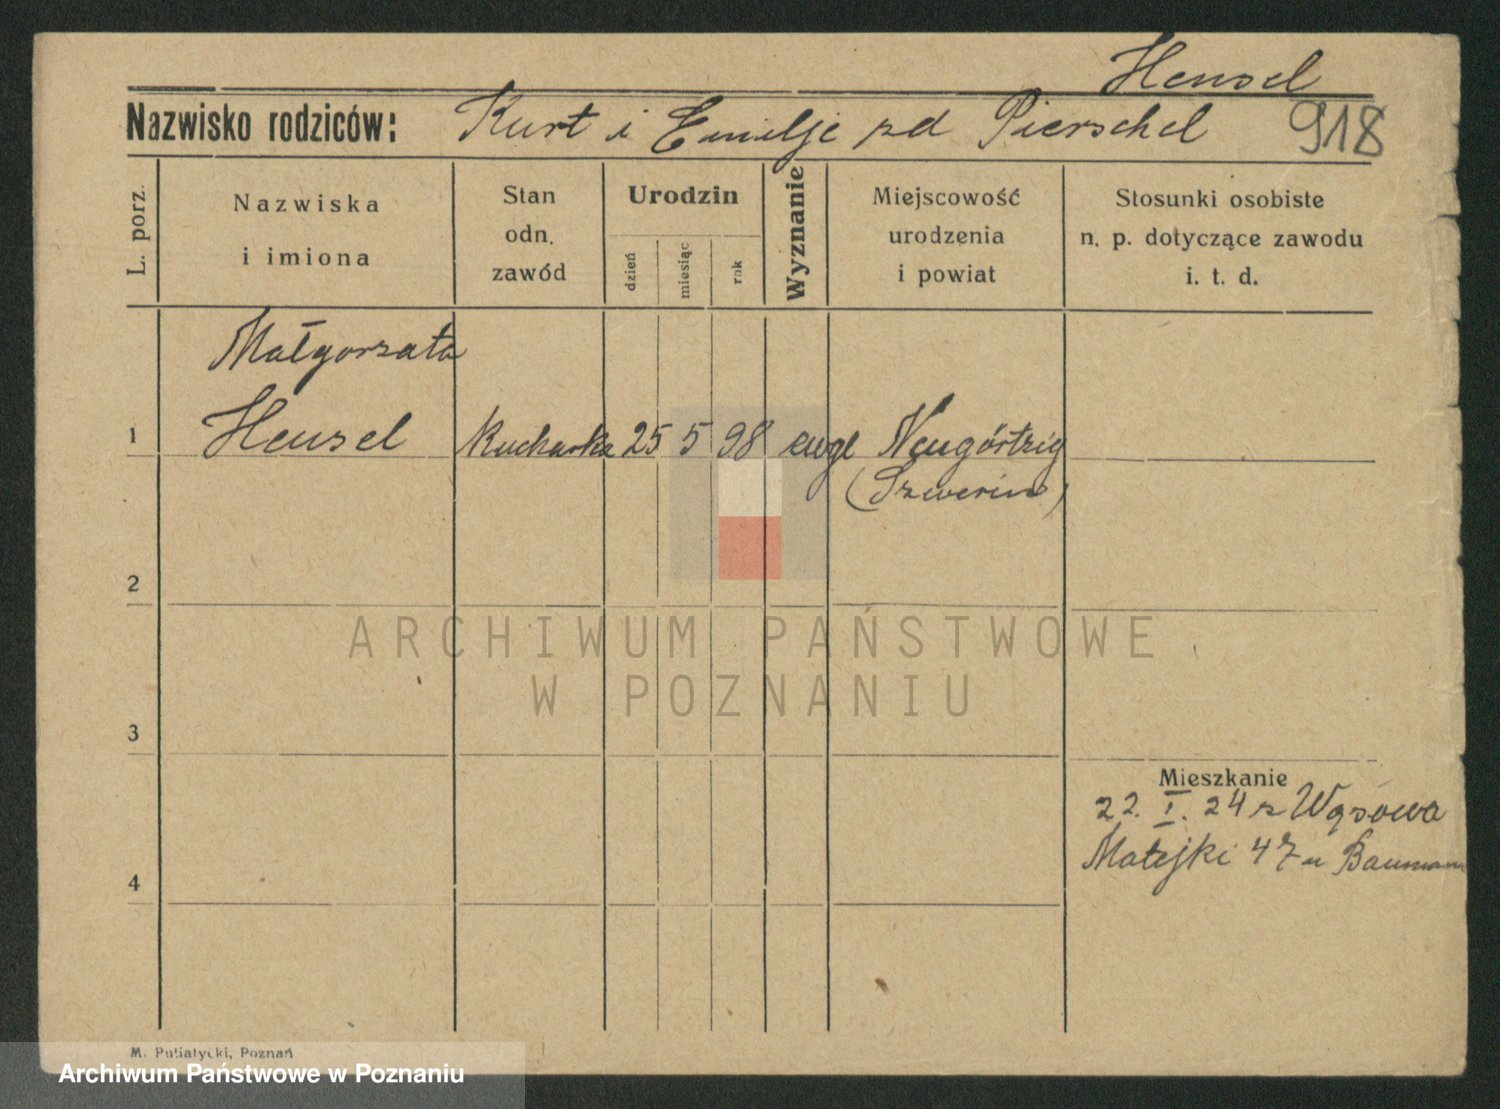 Hensel
Nazwisko rodziców: Kurt i Emilje zd Pierschel 918
L. porz.
Nazwiska
i imiona
Stan
odn.
zawód
Urodzin
dzień
miesiąc
rok
Wyznanie
Miejscowość
urodzenia
i powiat
Stosunki osobiste
n. p. dotyczące zawodu
i. t. d.
Małgorzata
1 Hensel Kucharka 25 5 98 ewgl Neugörtzig
(Szwerin)
2
ARCHIWUM PAŃSTWOWE
W POZNANIU
3
Mieszkanie
22. I. 24 z Wąsowa
Matejki 47 u Baumann
4
M. Putiatycki, Poznań
Archiwum Państwowe w Poznaniu